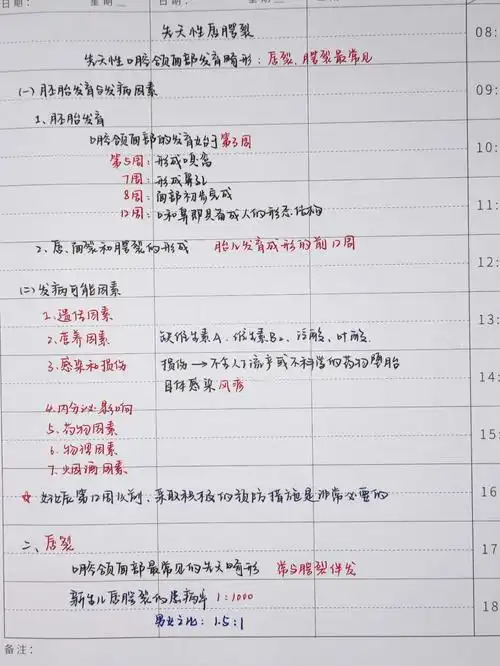 日期: 星期二 日期: 星期
先天性唇腭裂
先天性口腔颌面部发育畸形: 唇裂, 腭裂最常见
(一) 胚胎发育与发病因素
1. 胚胎发育
口腔颌面部的发育始于第3周
第5周: 形成嗅窝
7周: 形成鼻孔
8周: 面部初步完成
12周: 口和鼻即具有成人的形态结构
2. 唇、面裂和腭裂的形成 胎儿发育成形的前12周
(二) 发病可能因素
1. 遗传因素
2. 营养因素 缺维生素A. 维生素B2、泛酸、叶酸
3. 感染和损伤 损伤→不全人工流产或不科学的药物堕胎
母体感染风疹
4. 内分泌影响
5. 药物因素
6. 物理因素
7. 烟酒因素
☆ 妊娠第12周以前、采取积极的预防措施是非常必要的
二、唇裂
口腔颌面部最常见的先天畸形 常与腭裂伴发
新生儿唇腭裂的患病率 1:1000
男女之比: 1.5:1
备注:
08:
09:
10:
11:
12:
13:
14:
15:
16:
17:
18: